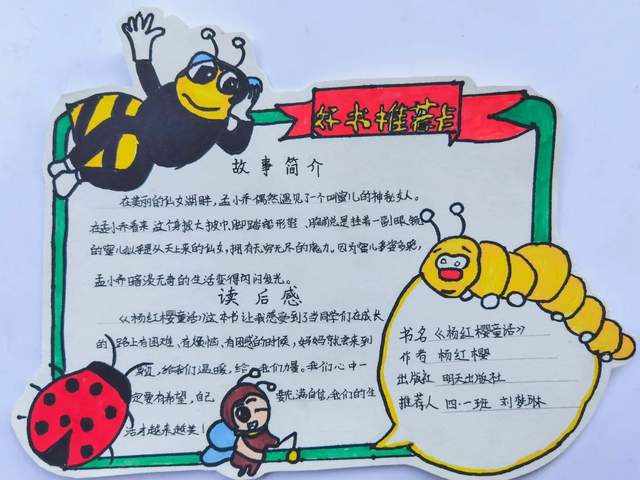 好书推荐卡
故事简介
在美丽的仙女湖畔，孟小乔偶然遇见了一个叫蜜儿的神秘女人。
在孟小乔看来这个身披大披巾，脚踏船形鞋、胸前总是挂着一副眼镜
的蜜儿似乎是从天上来的仙女，拥有无穷无尽的魔力。因为蜜儿多姿多彩，
孟小乔暗淡无奇的生活变得闪闪发光。
读后感
《杨红樱童话》这本书让我感受到了当同学们在成长
的路上有困难、在烦恼、有困惑的时候，妈妈就会来到
给我们温暖，给我们力量。我们心中一
定要有希望，自己要充满自信，我们的生
活才越来越美！
书名《杨红樱童话》
作者 杨红樱
出版社 明天出版社
推荐人 四·一班 刘梦琳